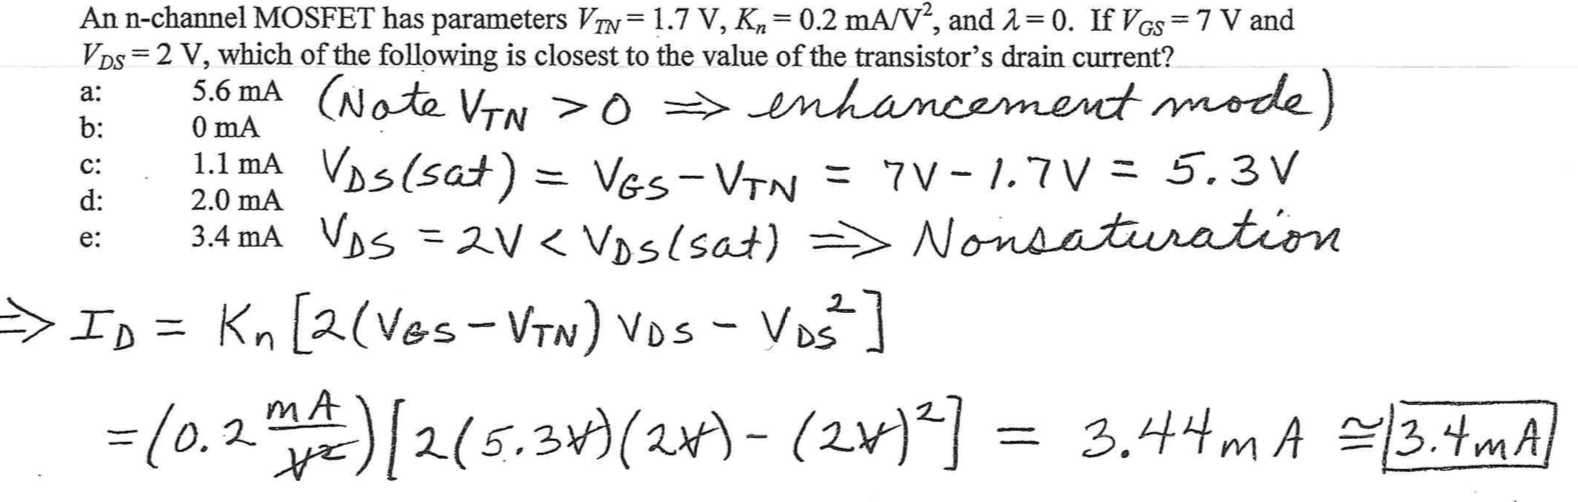 An n-channel MOSFET has parameters V_TN = 1.7 V, K_n = 0.2 mA/V², and λ = 0. If V_GS = 7 V and
V_DS = 2 V, which of the following is closest to the value of the transistor's drain current?
a: 5.6 mA
b: 0 mA
c: 1.1 mA
d: 2.0 mA
e: 3.4 mA
(Note V_TN > 0 ⇒ enhancement mode)
V_DS(sat) = V_GS - V_TN = 7V - 1.7V = 5.3V
V_DS = 2V < V_DS(sat) ⇒ Nonsaturation
⇒ I_D = K_n [2(V_GS - V_TN) V_DS - V_DS²]
= (0.2 mA/V²) [2(5.3V)(2V) - (2V)²] = 3.44 mA ≅ 3.4 mA